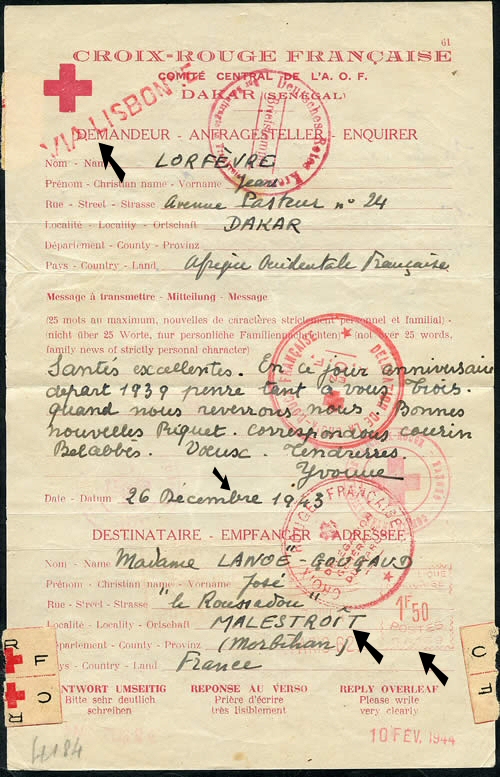 61
CROIX-ROUGE FRANÇAISE
COMITÉ CENTRAL DE L'A. O. F.
DAKAR (SÉNÉGAL)
VIA LISBONNE
Deutsches Rotes Kreuz
DEMANDEUR - ANFRAGESTELLER - ENQUIRER
Nom - Name LORFÈVRE
Prénom - Christian name - Vorname Jean
Rue - Street - Strasse Avenue Pasteur n° 24
Localité - Locality - Ortschaft DAKAR
Département - County - Provinz
Pays - Country - Land Afrique Occidentale Française
Message à transmettre - Mitteilung - Message
(25 mots au maximum, nouvelles de caractères strictement personnel et familial) -
(nicht über 25 Worte, nur personliche Familiennachrichten) - (not over 25 words,
family news of strictly personal character)
Santés excellentes. En ce jour anniversaire
départ 1939 pense tant à vous Trois.
quand nous reverrons nous. Bonnes
nouvelles Riquet. correspondons cousin
Belabbès. Voeux. Tendresses.
Yvonne
Date - Datum 26 Décembre 1943
CROIX ROUGE FRANÇAISE
DESTINATAIRE - EMPFANGER - ADRESSEE
Nom - Name Madame LANOË-GOUGAUD
Prénom - Christian name - Vorname José
Rue - Street - Strasse "le Roussadou"
Localité - Locality - Ortschaft MALESTROIT
Département - County - Provinz (Morbihan)
Pays - Country - Land France
1F50
POSTES
R F
C F
ANTWORT UMSEITIG REPONSE AU VERSO REPLY OVERLEAF
Bitte sehr deutlich Prière d'écrire Please write
schreiben très lisiblement very clearly
10 FÉV. 1944